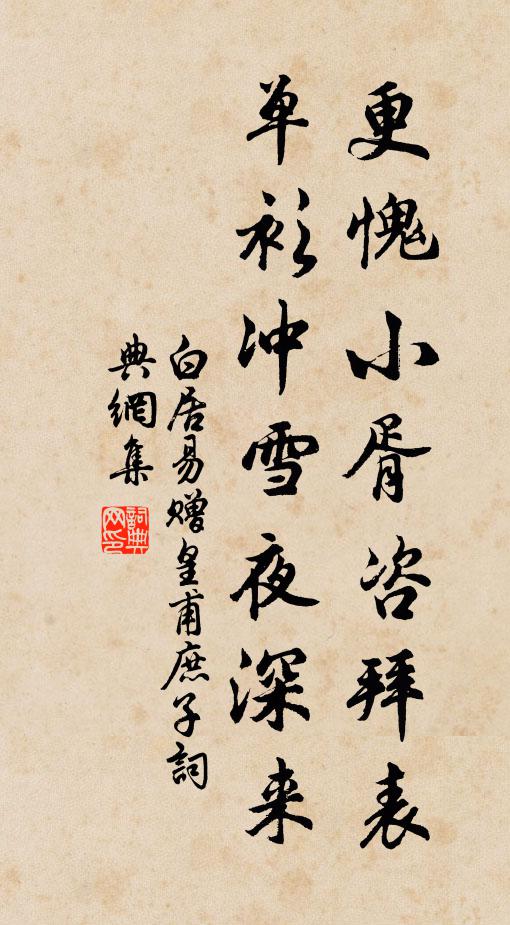 更愧小胥咨拜表
单衫冲雪夜深来
白居易赠皇甫庶子詞
典網集
詞典网印